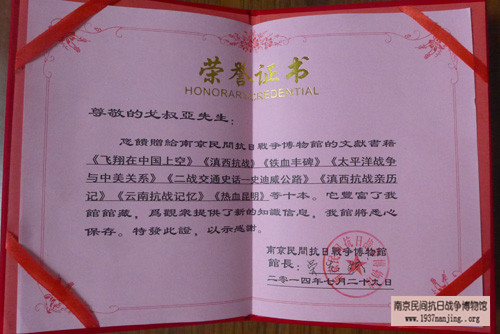 荣誉证书
HONORARY CREDENTIAL
尊敬的戈叔亞先生：
您饋贈給南京民間抗日戰爭博物館的文献書籍
《飞翔在中国上空》《滇西抗战》《铁血丰碑》《太平洋战争
与中美关系》《二战交通史话—史迪威公路》《滇西抗战亲历
记》《云南抗战记忆》《热血昆明》等十本。它豐富了我
館館藏，爲觀衆提供了新的知識信息，我館將悉心
保存。特發此證，以示感謝。
南京民間抗日戰爭博物館
館長：
二零一四年七月二十九日
南京民间抗日战争博物馆
www.1937nanjing.org